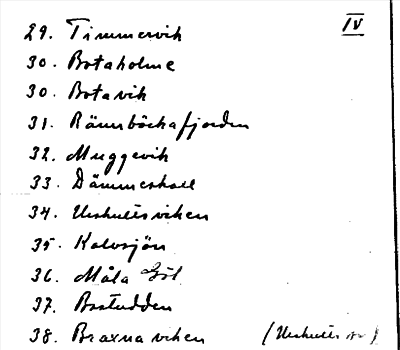 IV
29. Timmervik
30. Botaholme
30. Botavik
31. Rännbäckafjorden
32. Muggevik
33. Dämmerhall
34. Uvhultsviken
35. Kalvsjön
36. Måla Göl
37. Bastudden
38. Braxnaviken